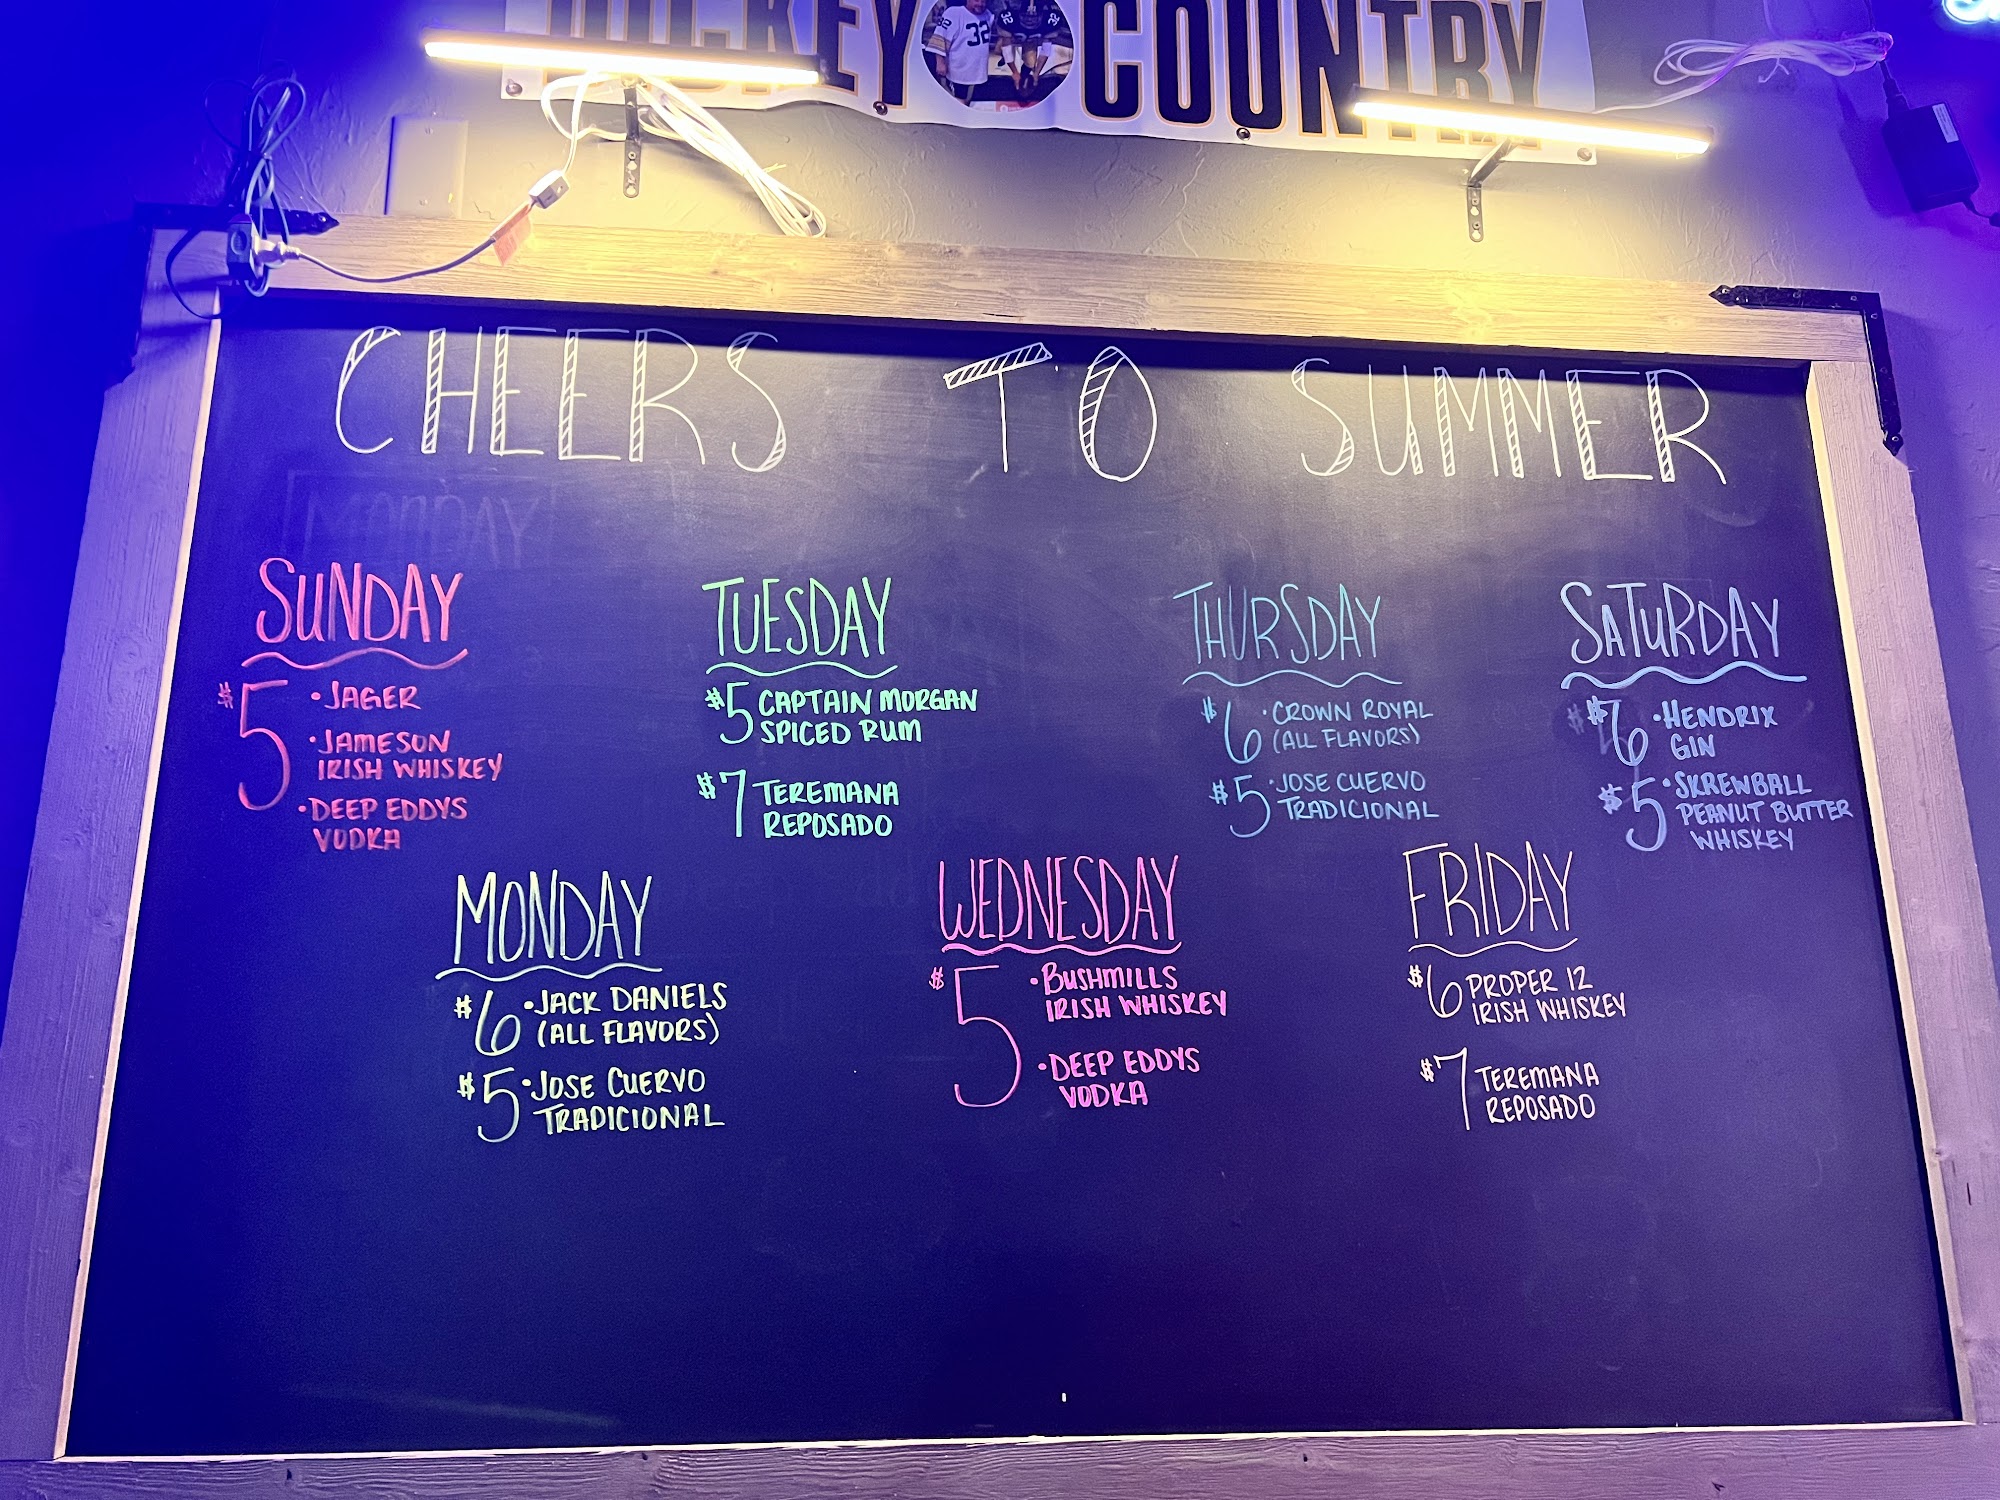 COUNTRY
32
CHEERS TO SUMMER
MONDAY
SUNDAY
$5
•JAGER
•JAMESON
IRISH WHISKEY
•DEEP EDDYS
VODKA
TUESDAY
$5 CAPTAIN MORGAN
SPICED RUM
$7 TEREMANA
REPOSADO
THURSDAY
$6 •CROWN ROYAL
(ALL FLAVORS)
$5 •JOSE CUERVO
TRADICIONAL
SATURDAY
$6 •HENDRIX
GIN
$5 •SKREWBALL
PEANUT BUTTER
WHISKEY
MONDAY
$6 •JACK DANIELS
(ALL FLAVORS)
$5 •JOSE CUERVO
TRADICIONAL
WEDNESDAY
$5
•BUSHMILLS
IRISH WHISKEY
•DEEP EDDYS
VODKA
FRIDAY
$6 PROPER 12
IRISH WHISKEY
$7 TEREMANA
REPOSADO